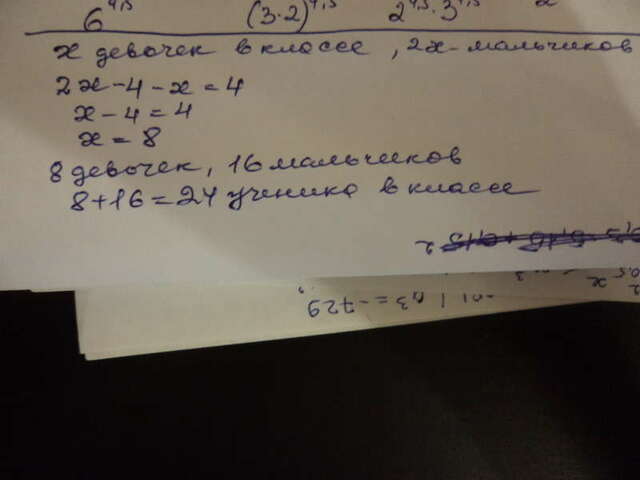 6^4,5 (3·2)^4,5 2^4,5·3^4,5
x девочек в классе, 2x- мальчиков
2x-4-x=4
x-4=4
x=8
8 девочек, 16 мальчиков
8+16=24 ученика в классе
=-729